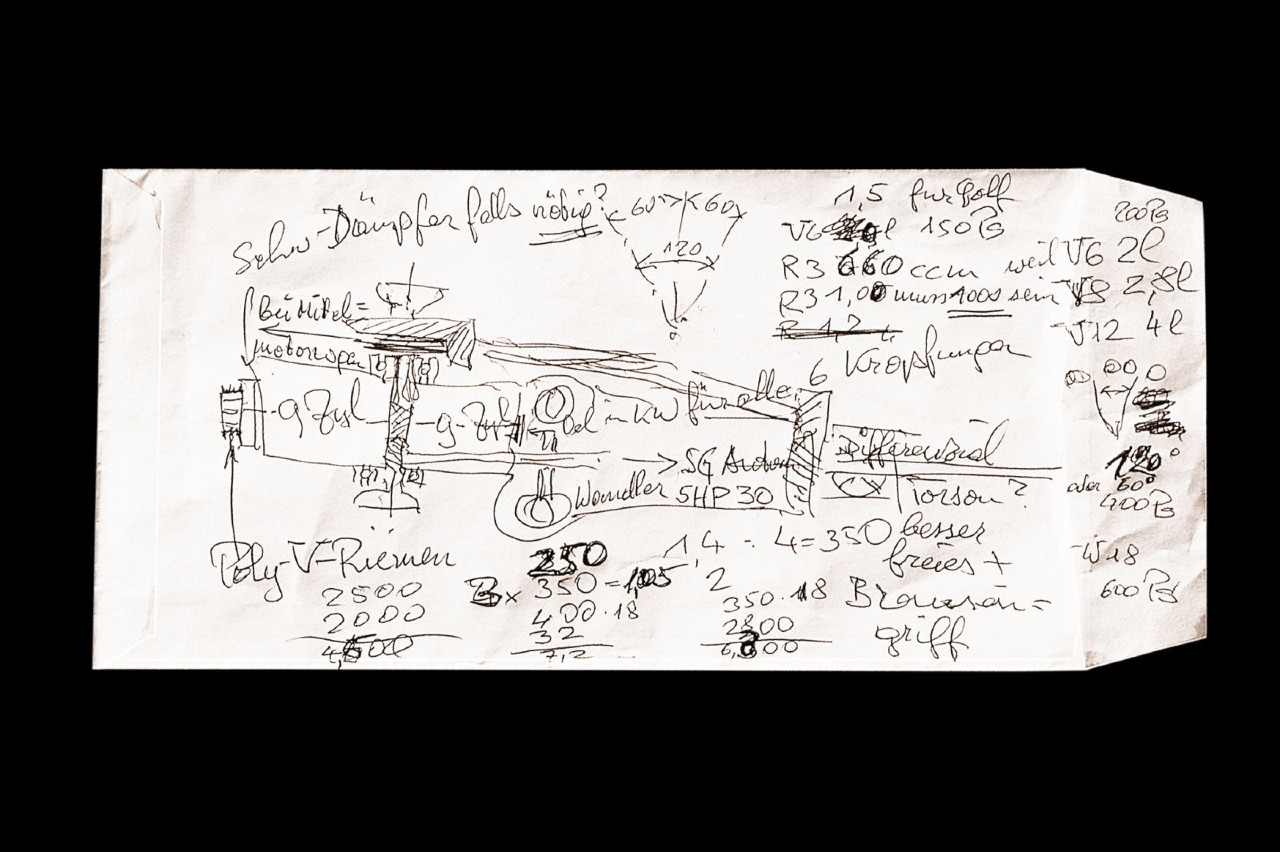 -Dämpfer falls nötig?
60° 60°
120
1,5 für Golf
V6 l 150 PS
R3 660 ccm weil V6 2l
R3 1,00 muss 1000 sein V8 2,8l
V12 4l
200 PS
6 Kröpfungen
bei Mittel=
9 Zyl 9 Zyl Oel in KW für alle
→ 5G
Wandler 5HP30
Differenzial
Torsen?
120°
oder 60°
400 PS
W18
600 PS
Poly-V-Riemen
2500
2000
4,500
250
350 = 1,05
400 · 18
32
7,2
1,4 : 4 = 350 besser
freies +
2
350 · 18
2800
6,300
griff